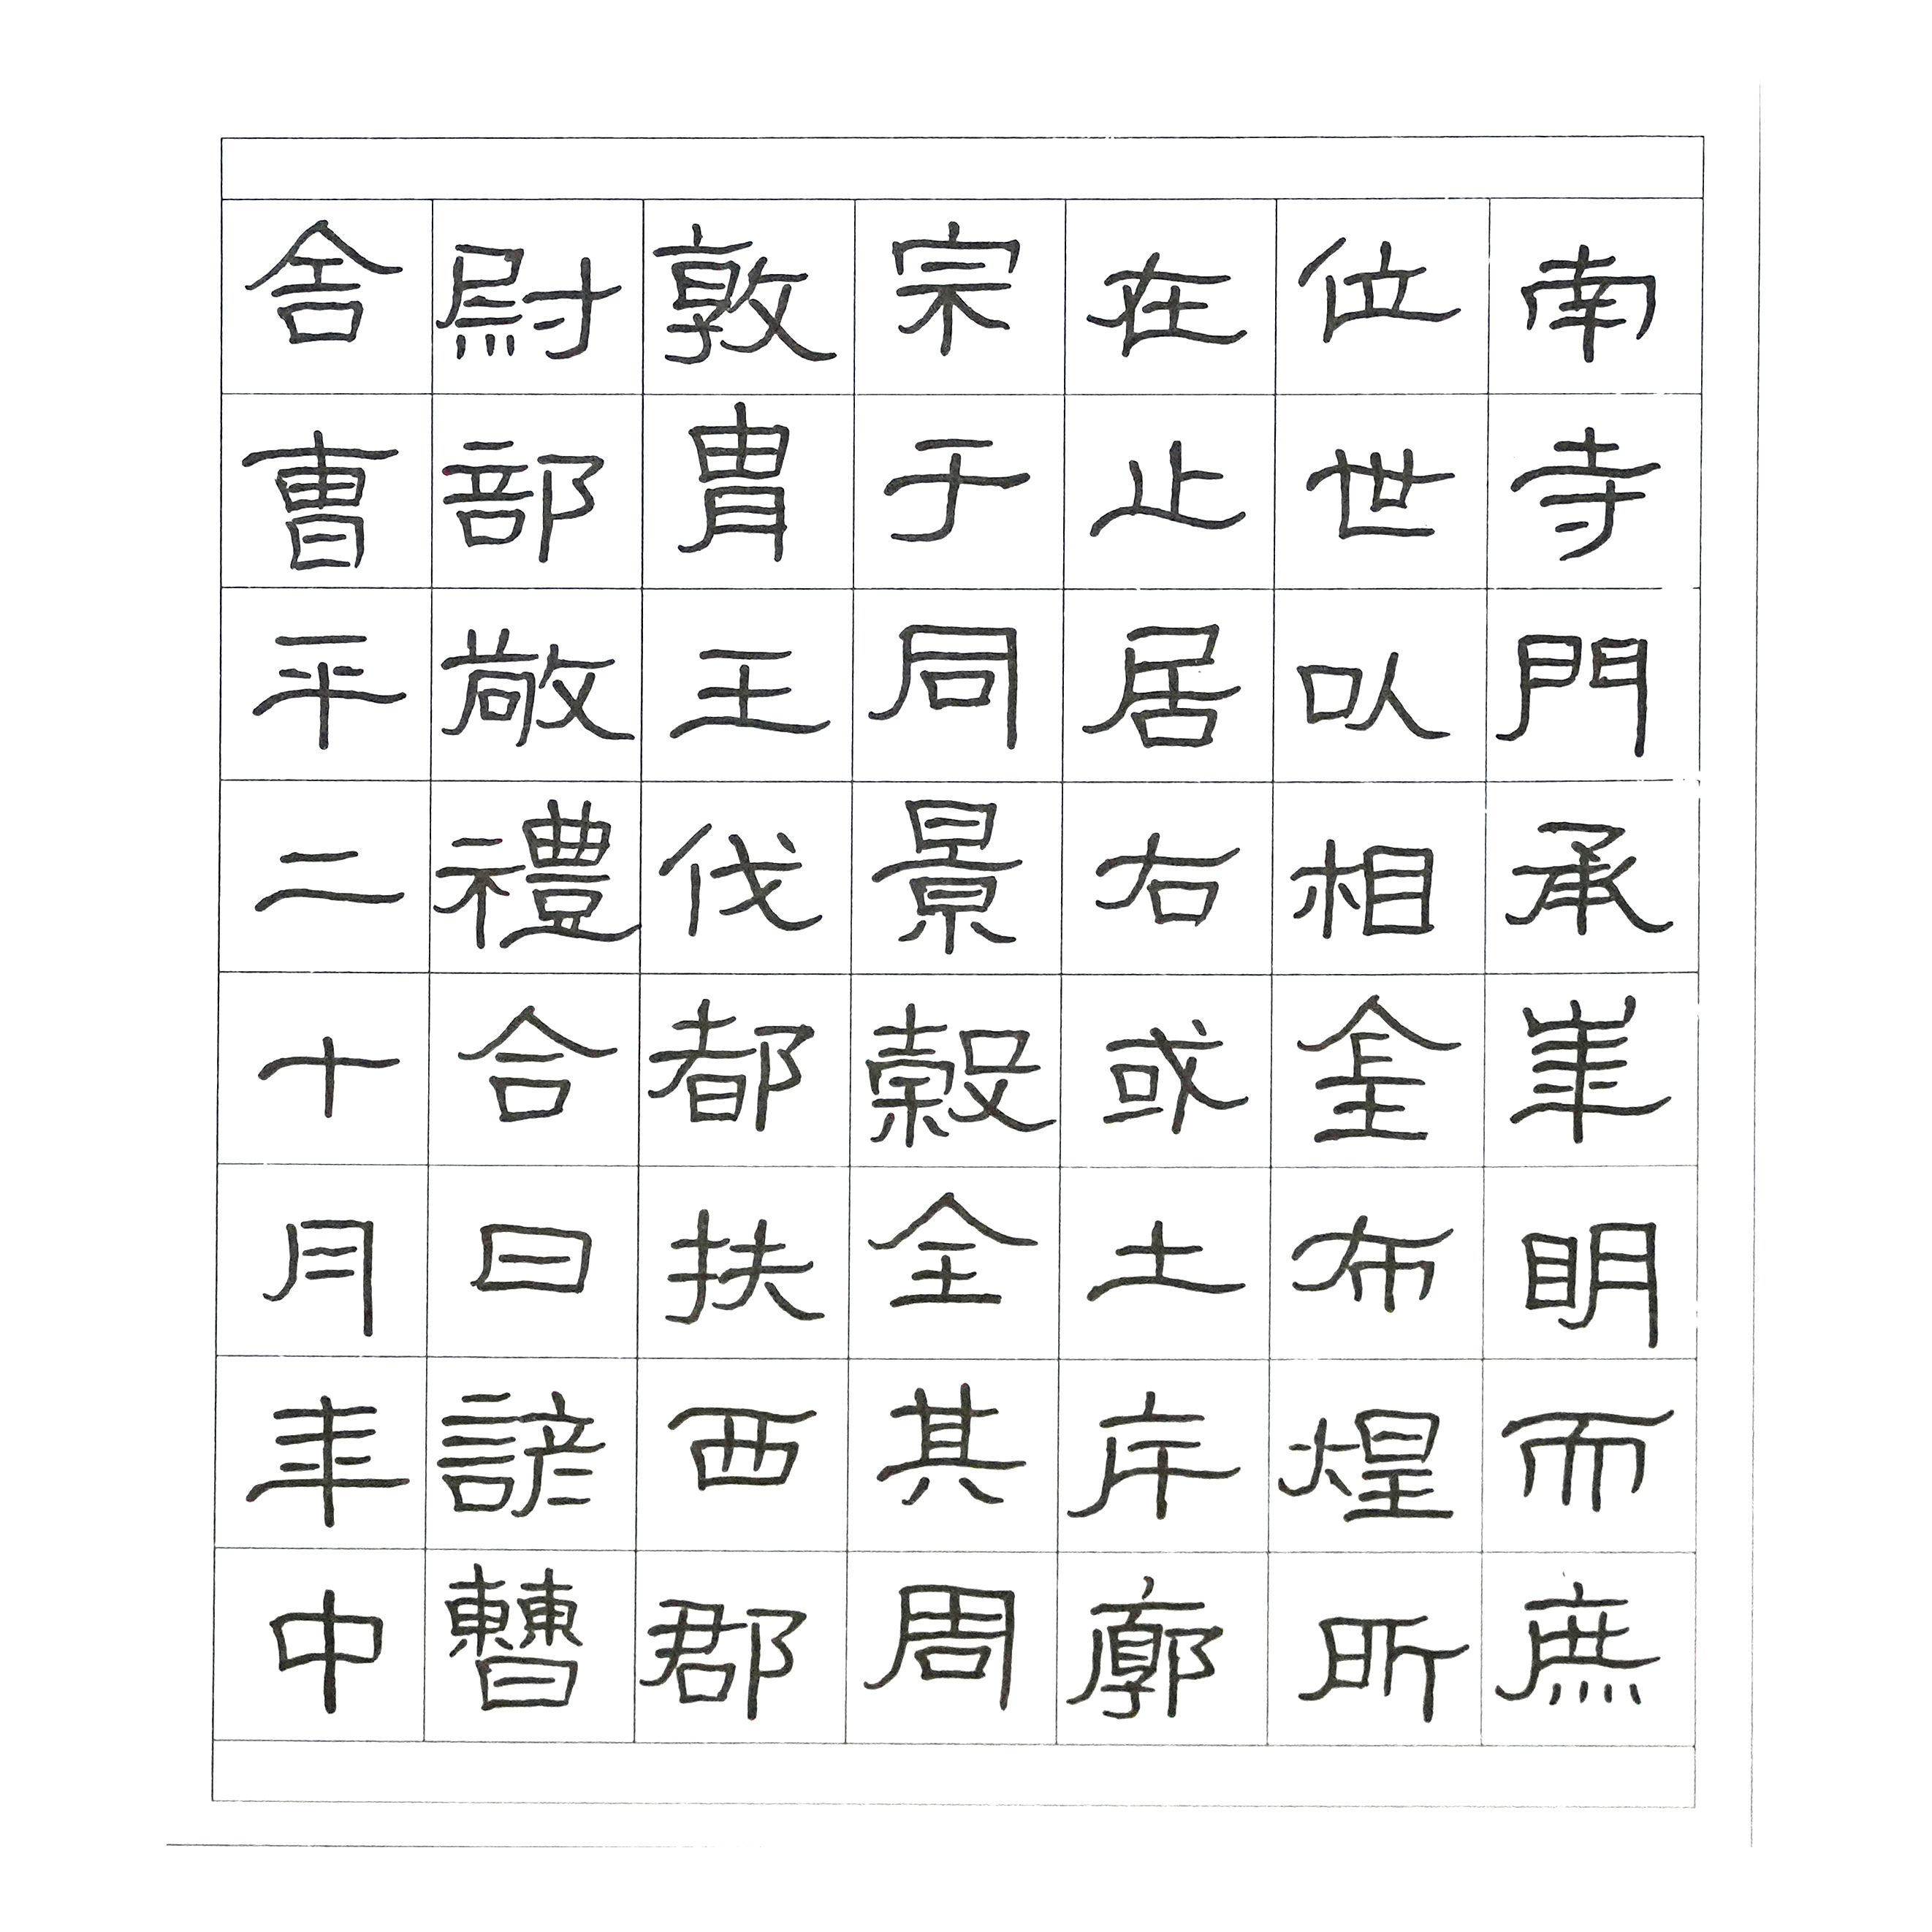 南寺門承華明而庶
位世以相金布煌所
在止居右或土斥廓
宗于同景穀全其周
敦胄王伐都扶西郡
尉部敞禮合曰諺㯥
舍曹平二十月年中